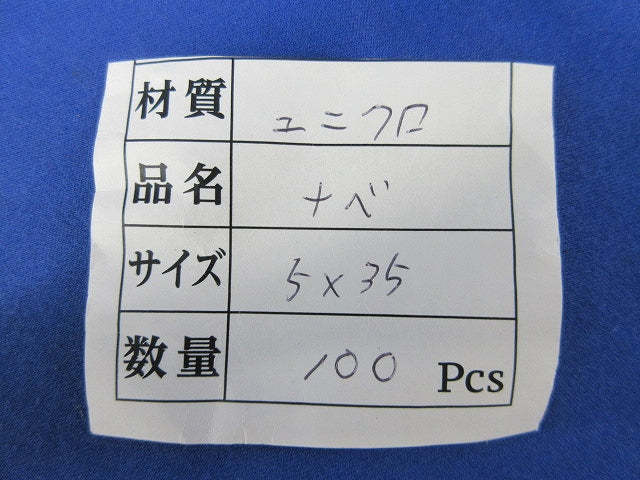 材質 ユニクロ
品名 ナベ
サイズ 5×35
数量 100 Pcs